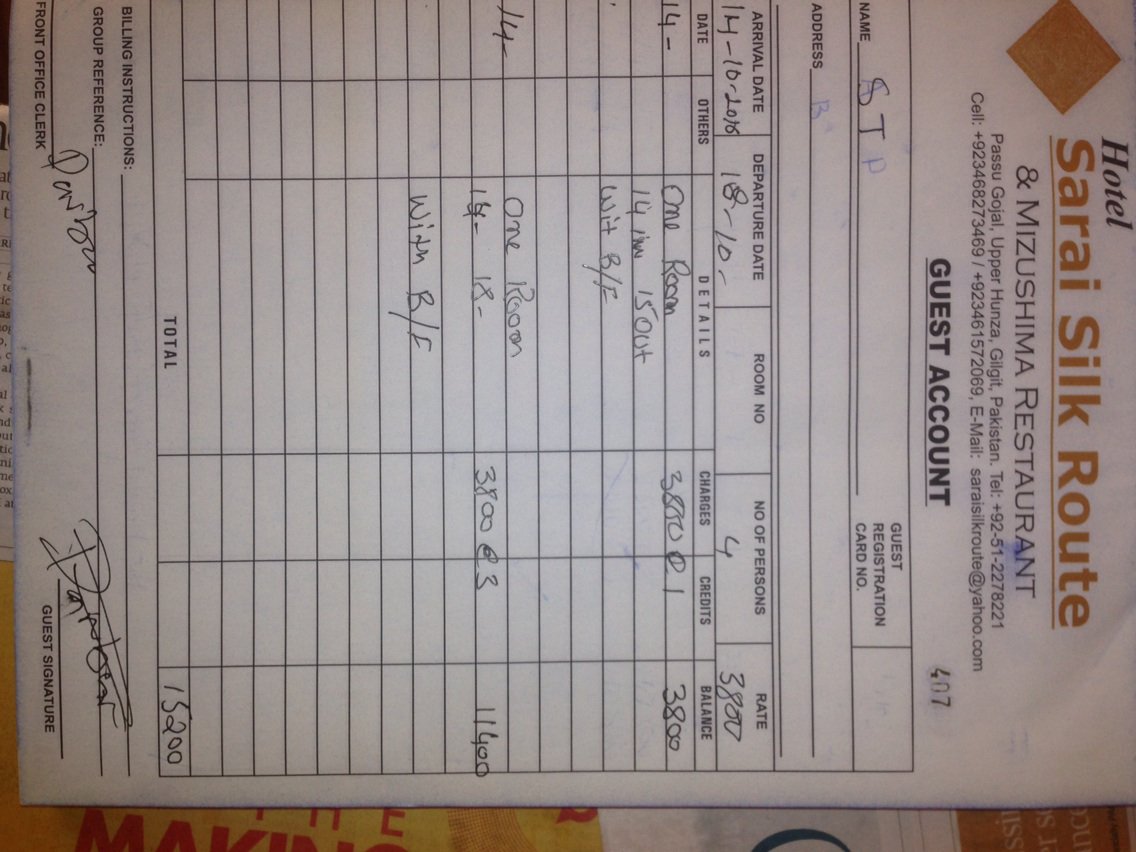 Hotel
Sarai Silk Route
& MIZUSHIMA RESTAURANT
Passu Gojal, Upper Hunza, Gilgit, Pakistan. Tel: +92-51-2278221
Cell: +923468273469 / +923461572069, E-Mail: saraisilkroute@yahoo.com
GUEST ACCOUNT 407
NAME STP GUEST REGISTRATION CARD NO.
ADDRESS
ARRIVAL DATE DEPARTURE DATE ROOM NO NO OF PERSONS RATE
14-10-2016 18-10- 4 3800
DATE OTHERS DETAILS CHARGES CREDITS BALANCE
14- One Room 3800 @ 1 3800
14 inn 15 Out
Wit B/F
14- One Room
14- 18- 3800 @ 3 11400
With B/F
TOTAL 15200
BILLING INSTRUCTIONS:
GROUP REFERENCE:
FRONT OFFICE CLERK GUEST SIGNATURE
THE
MAKING